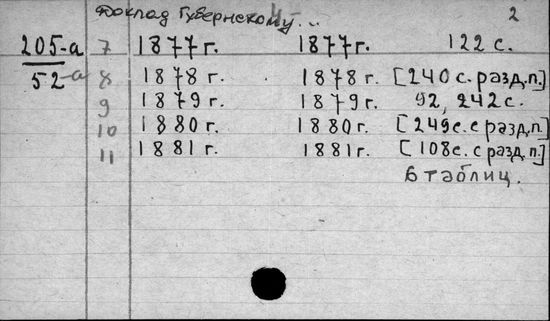 Доклад Губернскому... 2
205-а 7 1877 г. 1877 г. 122 с.
52-а 8 1878 г. 1878 г. [240 с. разд.п.]
9 1879 г. 1879 г. 92, 242 с.
10 1880 г. 1880 г. [249 с. с разд.п.]
11 1881 г. 1881 г. [108 с. с разд.п.]
6 таблиц.